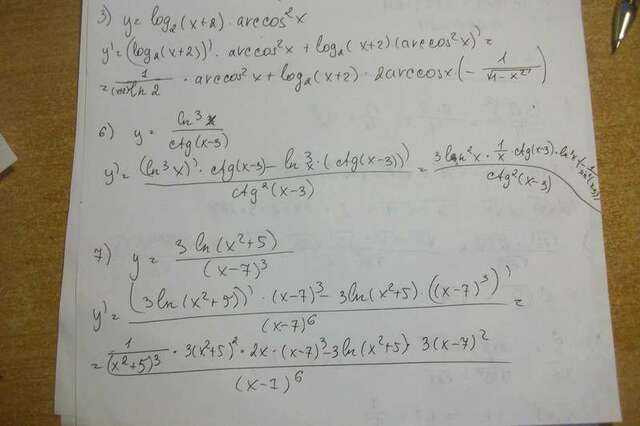 3) y = log₂(x+2) · arccos²x
y' = (log₂(x+2))' · arccos²x + log₂(x+2)(arccos²x)' =
= 1/((x+2)ln 2) · arccos²x + log₂(x+2) · 2arccosx(-1/√(1-x²))
6) y = ln³x/ctg(x-3)
y' = ((ln³x)' · ctg(x-3) - ln³x · (ctg(x-3))')/ctg²(x-3) = (3ln²x · 1/x · ctg(x-3) · ln³x + 1/sin²(x-3))/ctg²(x-3)
7) y = 3 ln(x²+5)/(x-7)³
y' = ((3ln(x²+5))' · (x-7)³ - 3ln(x²+5) · ((x-7)³)')/(x-7)⁶ =
= (1/(x²+5)³ · 3(x²+5)² · 2x · (x-7)³ - 3ln(x²+5) · 3(x-7)²)/(x-1)⁶